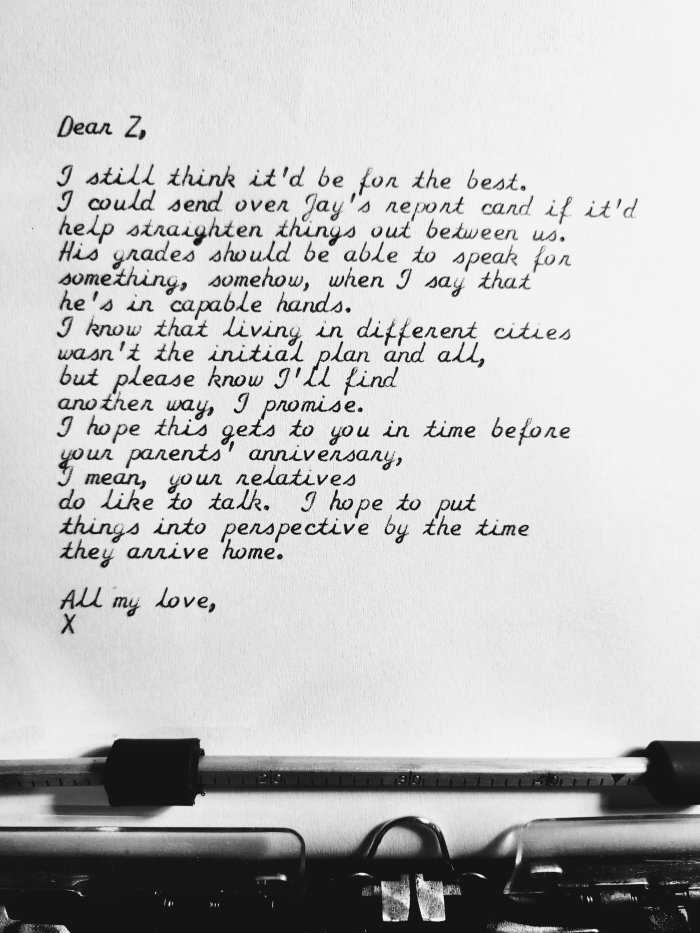 Dear Z,
I still think it'd be for the best.
I could send over Jay's report card if it'd
help straighten things out between us.
His grades should be able to speak for
something, somehow, when I say that
he's in capable hands.
I know that living in different cities
wasn't the initial plan and all,
but please know I'll find
another way, I promise.
I hope this gets to you in time before
your parents' anniversary,
I mean, your relatives
do like to talk.  I hope to put
things into perspective by the time
they arrive home.
All my love,
X
20 30 40